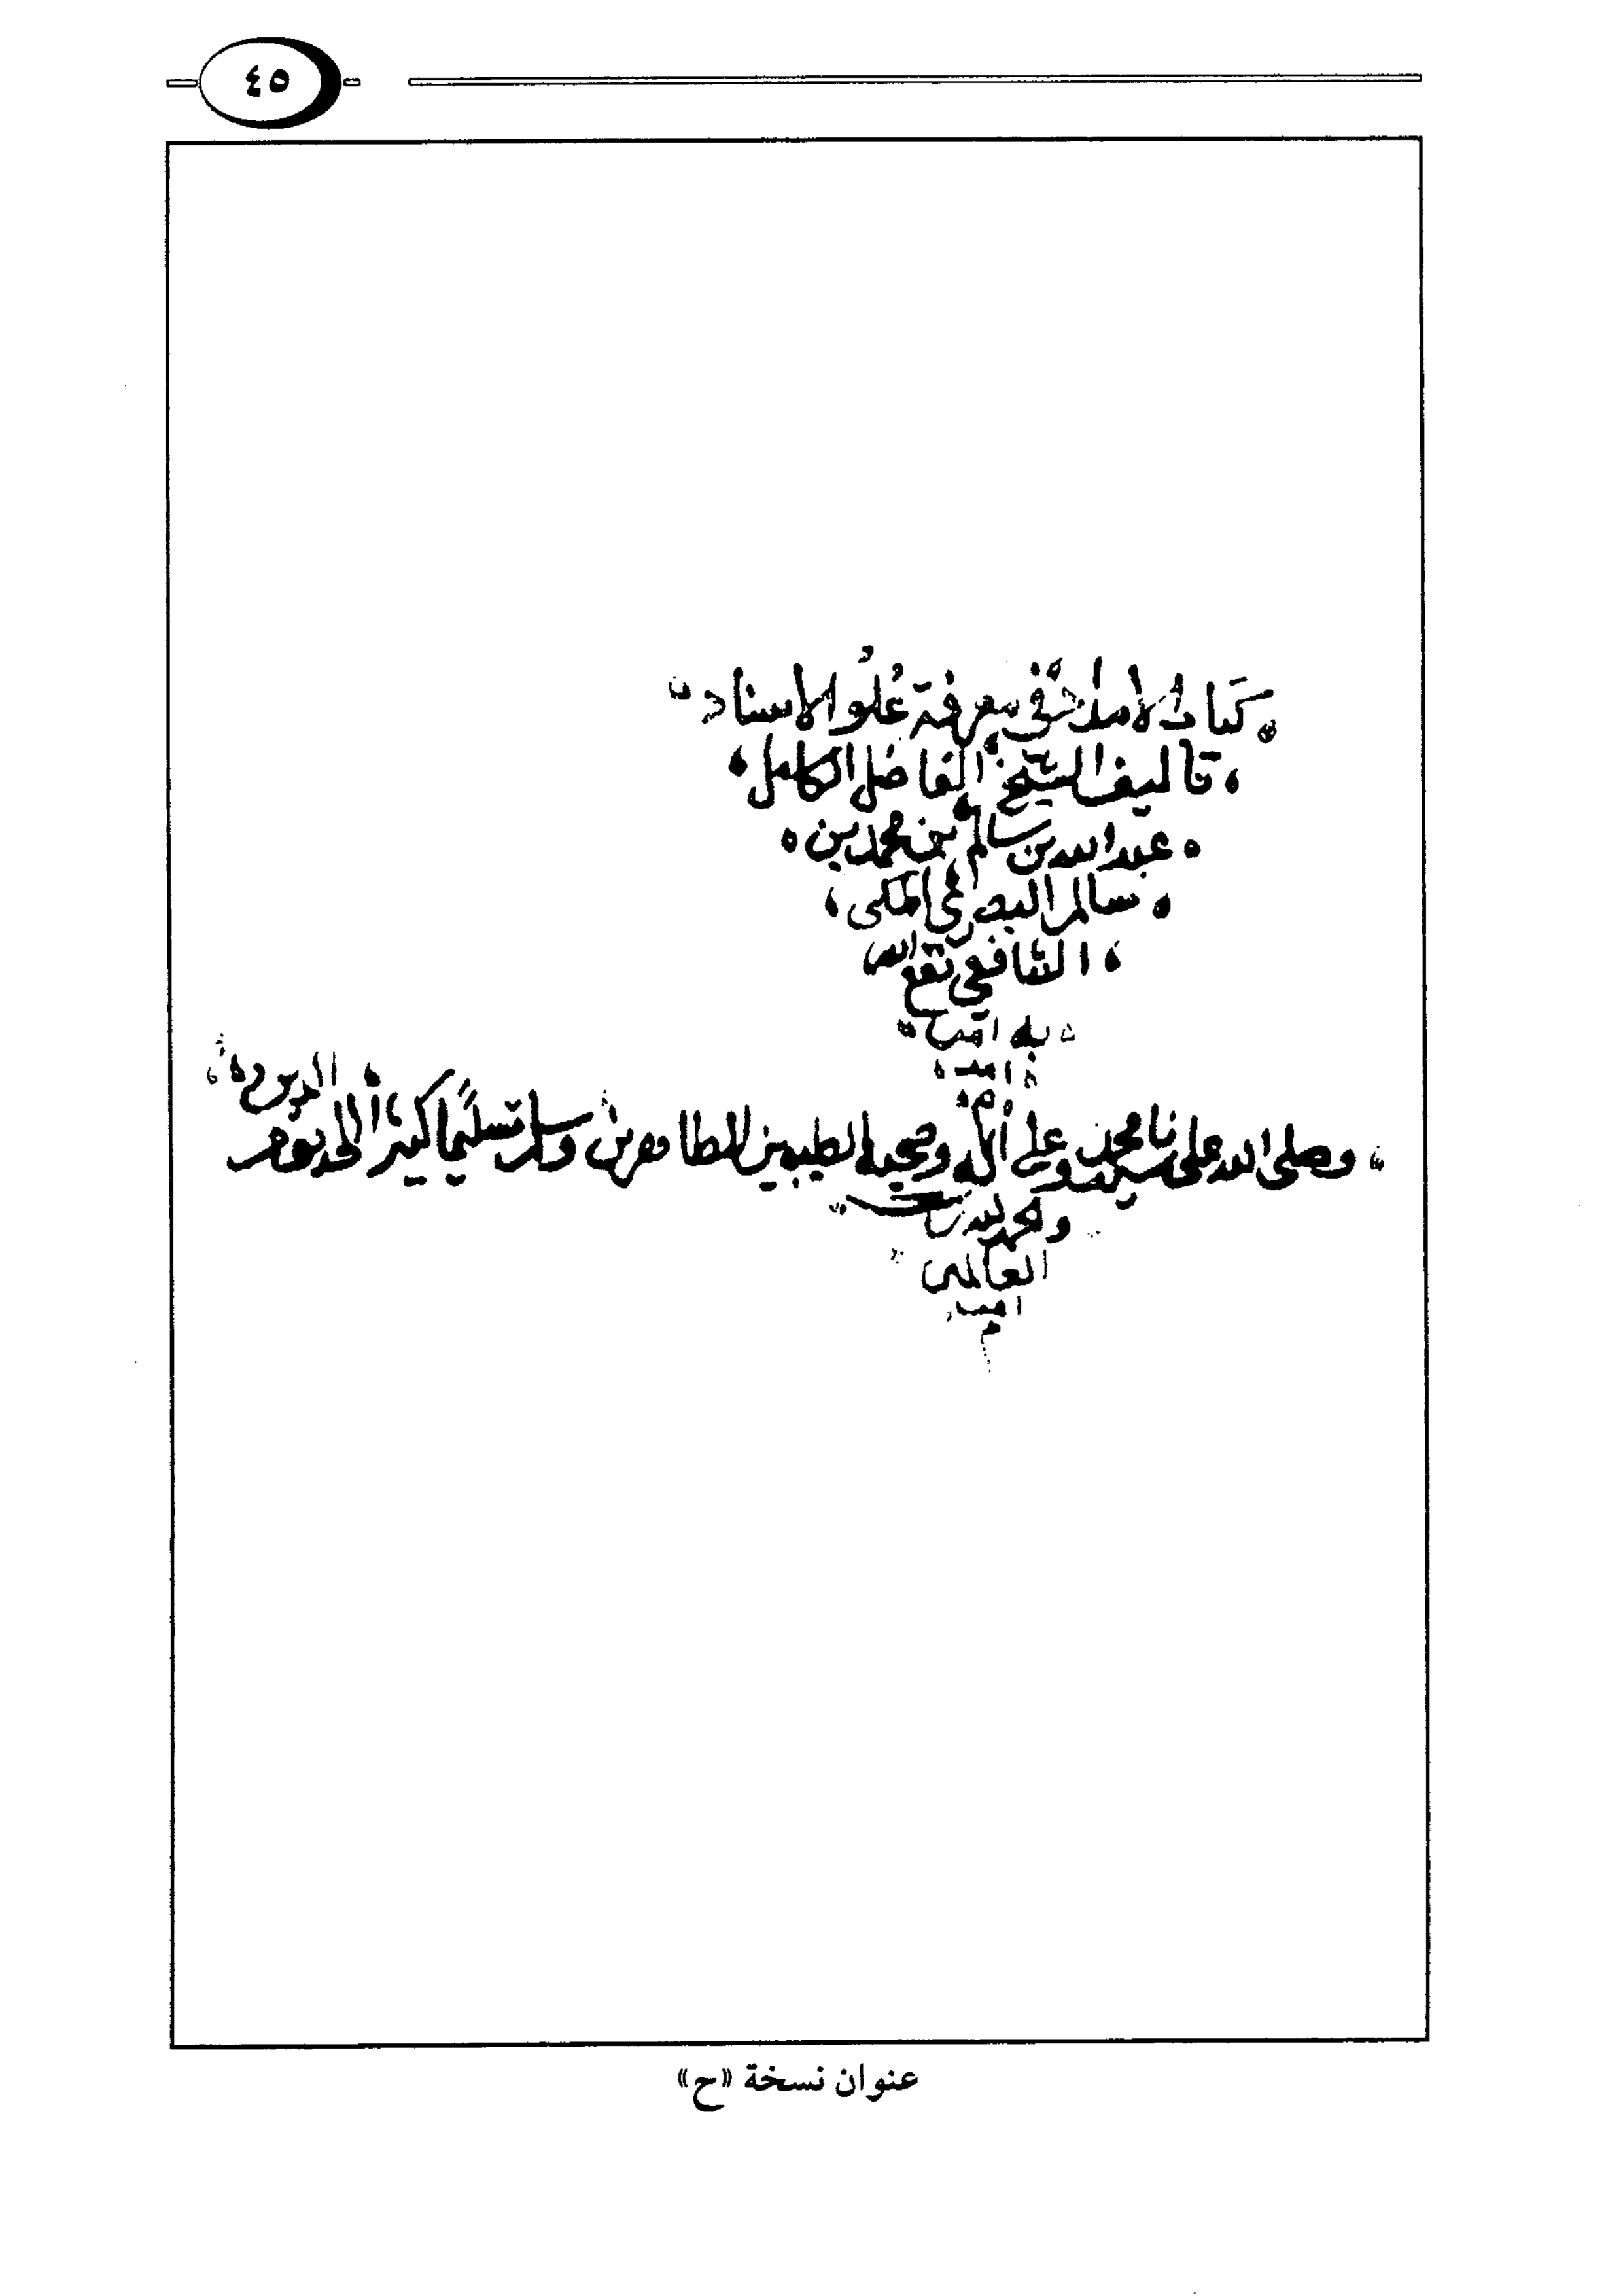 ٤٥
كتاب الامداد في معرفة علو الاسناد
تاليف الشيخ الفاضل الكامل
عبد الله بن سالم بن محمد بن
سالم البصري المكي
الشافعي نفع الله
به امين
امين
م
وصلى الله على سيدنا محمد وعلى آله وصحبه الطيبين الطاهرين وسلم تسليمًا كثيرًا الى يوم الدين
والحمد لله رب
العالمين
امين
م
عنوان نسخة «ح»